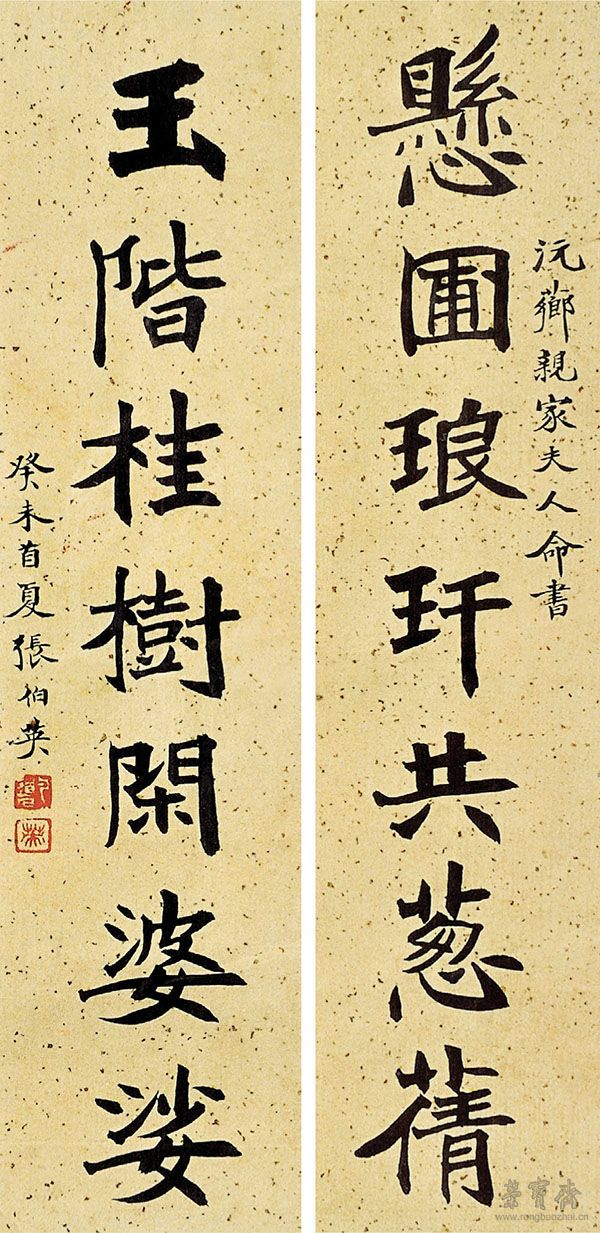 沅薌親家夫人命書
懸圃琅玕共葱蒨
玉階桂樹閑婆娑
癸未首夏張伯英
榮寶齋
www.rongbaozhai.cn